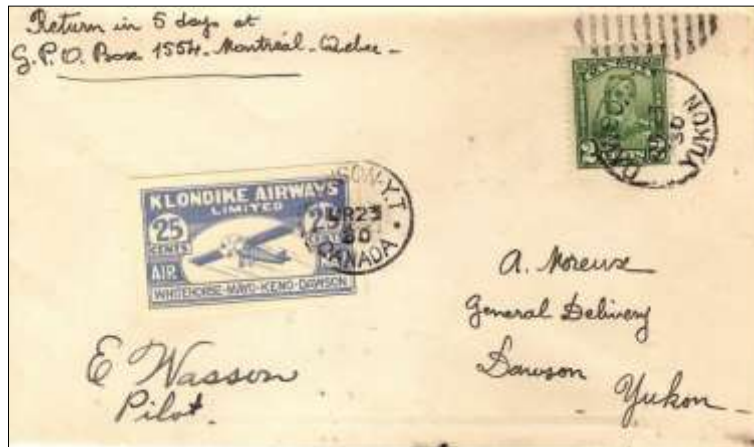 Return in 5 days at
G.P.O. Box 1554 - Montreal - Quebec -
2
YUKON
30
KLONDIKE AIRWAYS
LIMITED
25 CENTS
25
AIR
WHITEHORSE-MAYO-KENO-DAWSON
SON-Y.T
23
30
CANADA
A. Moreuse
General Delivery
Dawson
Yukon
E Wasson
Pilot